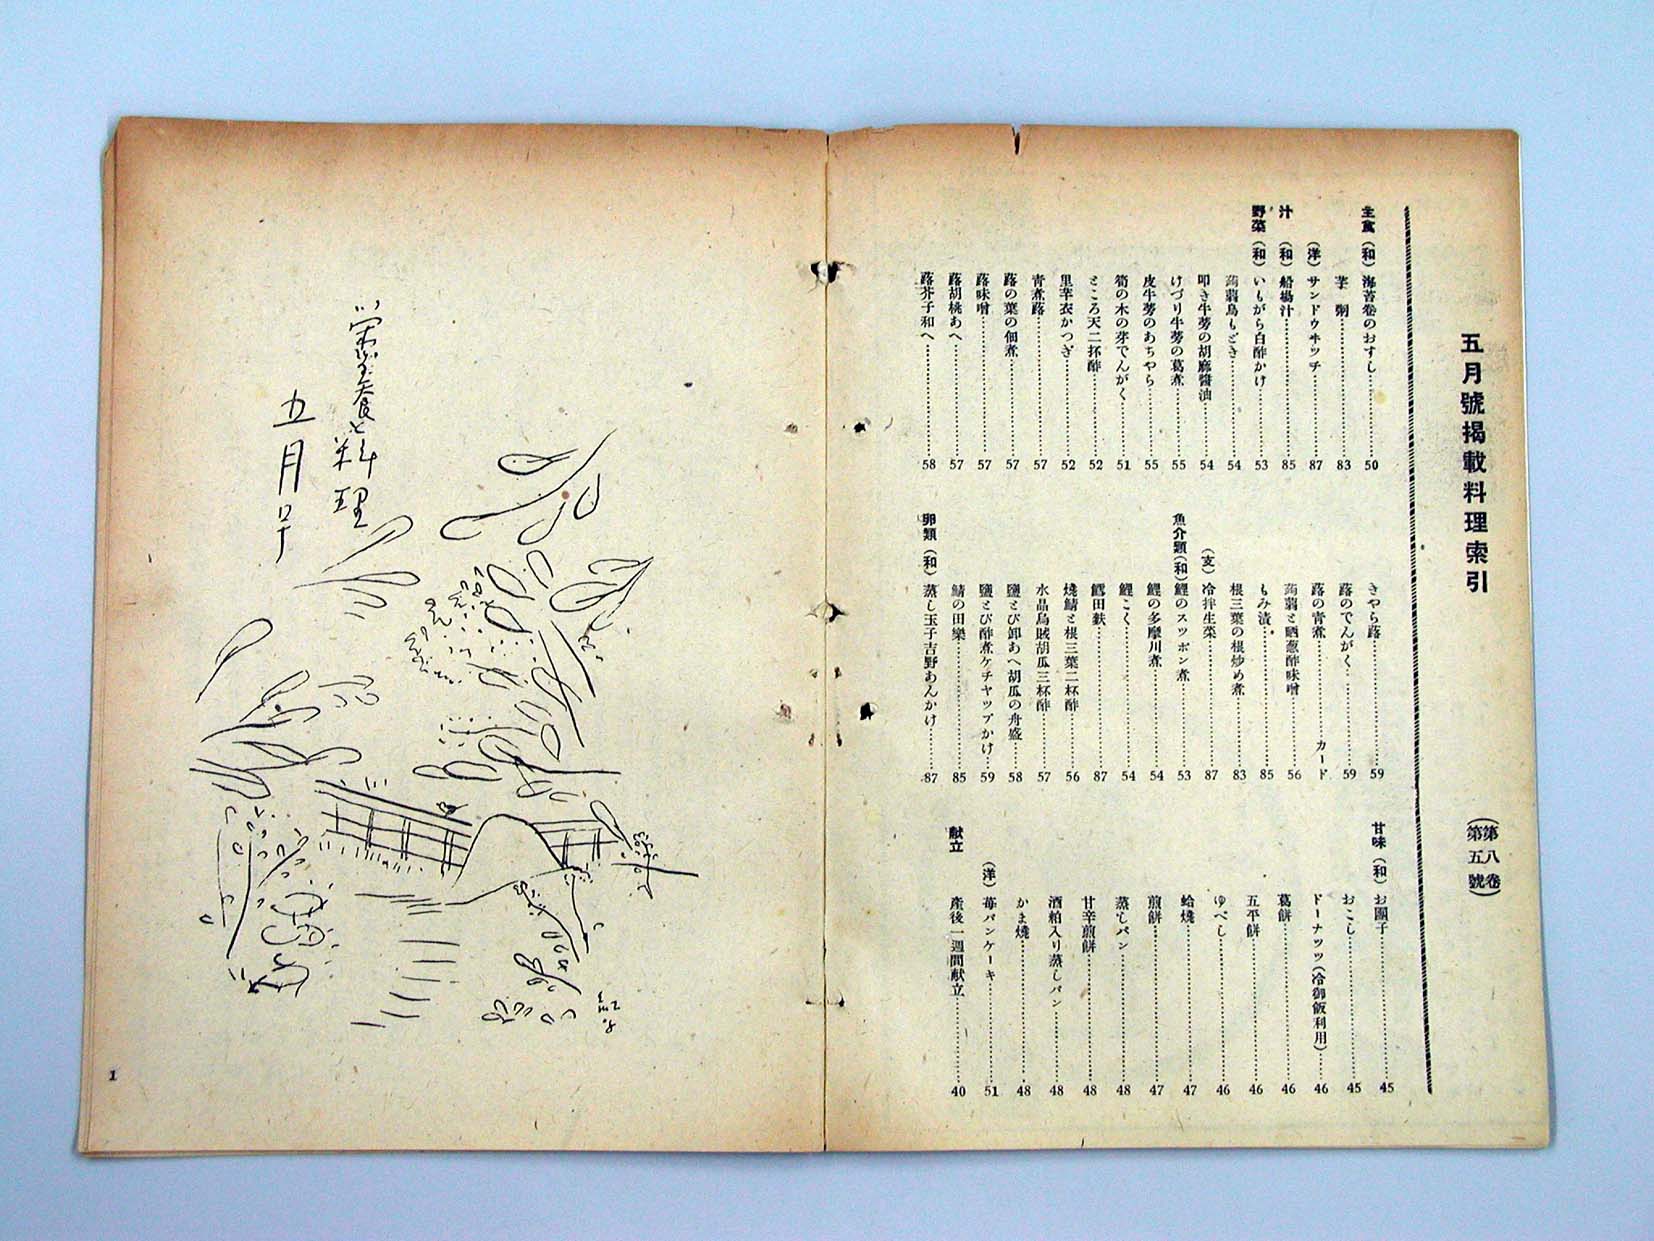 五月號揭載料理索引
（第八卷
第五號）
主食（和）海苔卷のおすし……50
芋粥……83
（洋）サンドウヰツチ……87
汁（和）船場汁……85
野菜（和）いもがら白酢かけ……53
蒟蒻鳥もどき……54
叩き牛蒡の胡麻醬油……54
けづり牛蒡の葛煮……55
皮牛蒡のあちやら……55
筍の木の芽でんがく……51
ところ天二杯酢……52
里芋衣かつぎ……52
青煮蕗……57
蕗の葉の佃煮……57
蕗味噌……57
蕗胡桃あへ……57
蕗芥子和へ……58
きやら蕗……59
蕗のでんがく……59
蕗の青煮……カード
蒟蒻と晒葱酢味噌……56
もみ漬……85
根三葉の根炒め煮……83
（支）冷拌生菜……87
魚介類（和）鯉のスツポン煮……53
鯉の多摩川煮……54
鯉こく……54
鱈田麩……87
燒鯖と根三葉二杯酢……56
水晶烏賊胡瓜三杯酢……57
鹽とび卸あへ胡瓜の舟盛……58
鹽とび酢煮ケチヤツプかけ……59
鯖の田樂……85
卵類（和）蒸し玉子吉野あんかけ……87
甘味（和）お團子……45
おこし……45
ドーナツツ（冷御飯利用）……46
葛餅……46
五平餅……46
ゆべし……46
蛤燒……47
煎餅……47
蒸しパン……48
甘辛煎餅……48
酒粕入り蒸しパン……48
かま燒……48
（洋）苺パンケーキ……51
献立 產後一週間献立……40
榮養と料理
五月号
1